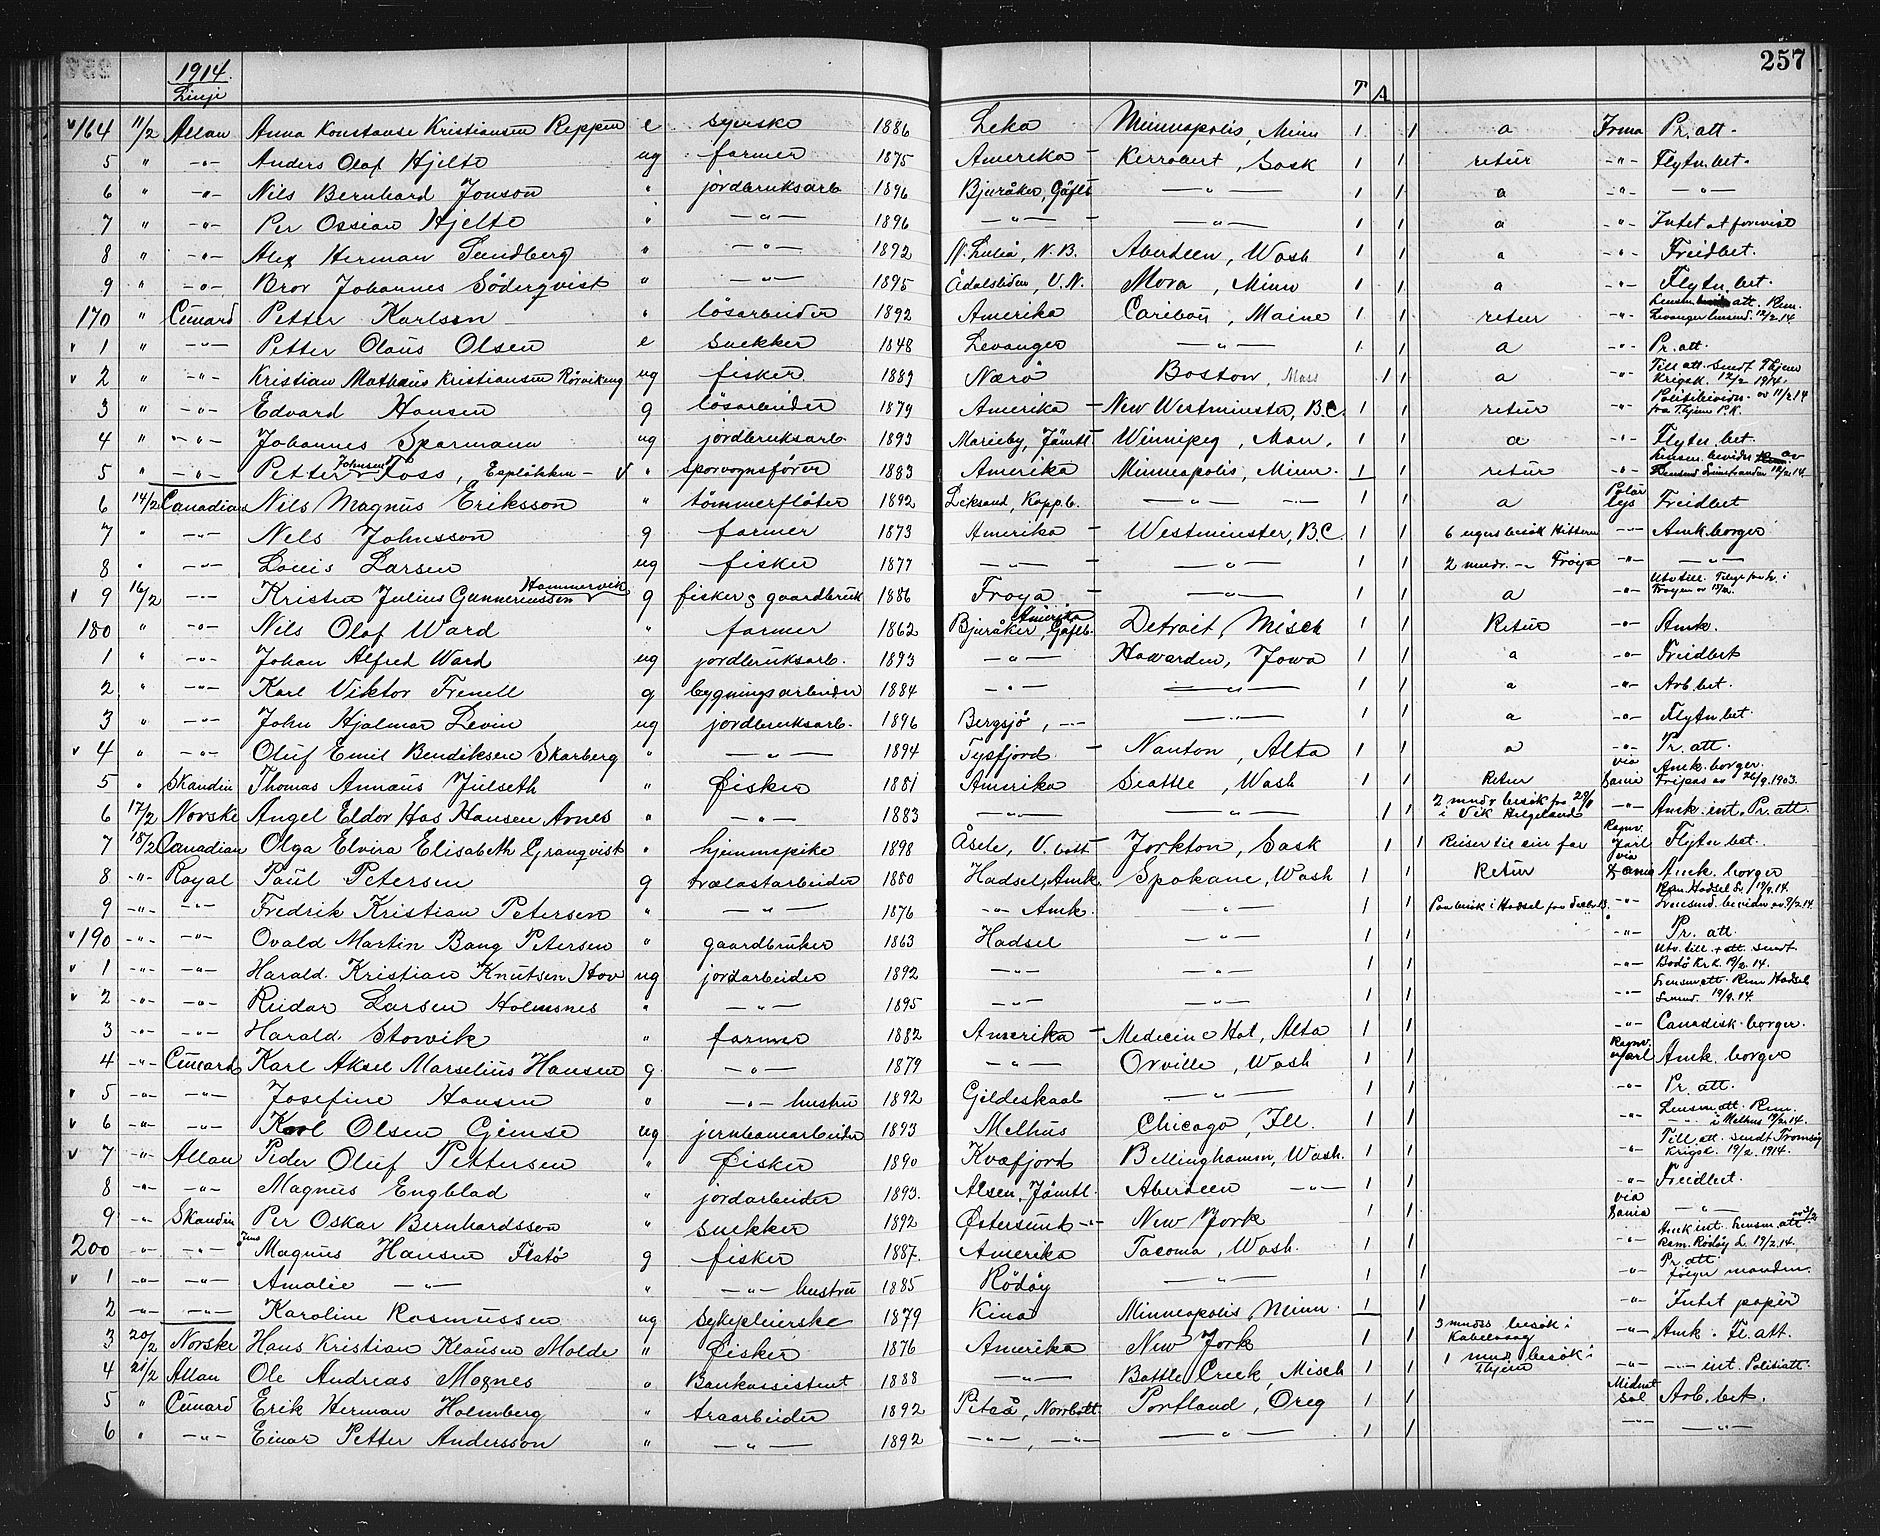 257
1914.
Linje T A
164 11/2 Allan Anna Konstanse Kristiansen Reppen e syerske 1886 Leka Minneapolis, Minn 1 1 a Irma Pr. att.
5 " -"- Anders Olof Hjelte ug farmer 1875 Amerika - Kerrobert, Sask 1 1 retur -"- Flytn. bet.
6 " -"- Nils Bernhard Jonson " jordbruksarb 1896 Bjuråker, Gäfleb -"- 1 1 a -"- -"-
7 " -"- Per Ossian Hjelte " -"- 1896 -"- - -"- 1 1 a -"- Intet at forevise
8 " -"- Alex Herman Sundberg " -"- 1892 N. Luleå, N. B. Aberdeen, Wash 1 1 a -"- Freidbet.
9 " -"- Bror Johannes Söderqvist " -"- 1895 Ådalsliden, V. N. Mora, Minn 1 1 a -"- Flytn. bet.
170 " Cunard Petter Karlsen " lösarbeider 1892 Amerika Caribou, Maine 1 1 retur -"- Lensm. att. Rem. Levanger lensmd. 12/2 14
v 1 " -"- Petter Olaus Olsen e snekker 1848 Levanger -"- 1 1 a -"- Pr. att.
v 2 " -"- Kristian Mathæus Kristiansen Rörvikeng ug fisker 1883 Nærö Boston, Mass 1 1 a -"- Till. att. sendt Thjem Krigsk. 12/2 1914.
3 " -"- Edvard Hansen g lösarbeider 1879 Amerika - New Westminster, B.C. 1 1 retur -"- Politibevidn. av 11/2 14 fra Thjem P.K.
4 " -"- Johannes Sparmann ug jordbruksarb. 1893 Marieby, Jämtl. Winnipeg, Man. 1 1 a -"- Flytn. bet.
5 " -"- Petter Johnsen Foss, - v " sporvognsfører 1883 Amerika Minneapolis, Minn. 1 1 retur -"- Lensm. bevidn. av 12/2 14
6 14/2 Canadian Nils Magnus Eriksson " tömmerflöter 1892 Leksand, Koppb. -"- 1 1 a Polarlys Freidbet
7 " -"- Nels Johnsson g farmer 1873 Amerika - Westminster, B.C. 1 1 6 ugers besök Hitteren -"- Amk. borger
8 " -"- Louis Larsen ug fisker 1877 -"- -"- 1 1 2 mndr. -"- Fröya -"- -"-
v 9 16/2 -"- Kristen Julius Gunneriussen Hammervik g fisker & gaardbruk 1886 Froya - -"- 1 1 a -"- Utv. till.
180 " -"- Nils Olof Ward " farmer 1862 Amerika Bjuråker, Gäfleb. Detroit, Misch 1 1 Retur -"- Amk.
1 " -"- Johan Alfred Ward ug jordbruksarb. 1893 -"- Hawarden, Jowa 1 1 a -"- Freidbet
2 " -"- Karl Viktor Frenell g bygningsarbeider 1884 -"- -"- 1 1 a -"- Arb. bet.
3 " -"- John Hjalmar Levin ug jordbruksarb. 1896 Bergsjö, -"- -"- 1 1 a -"- Flytn. bet.
v 4 " -"- Oluf Emil Bendiksen Skarberg " -"- 1894 Tysfjord - Nanton, Alta 1 1 a -"- Pr. att.
5 " Skandin Thomas Annæus Julseth " Fisker 1881 Amerika Seattle, Wash 1 1 Retur via Dania Amk. borger. Fripas av 26/9 1903.
6 17/2 Norske Angel Eldor Has Hansen Arnes " -"- 1883 -"- -"- 1 1 2 mndr besök fra i Vik Helgeland -"- Amk. int. Pr. att.
7 18/2 Canadian Olga Elvira Elisabeth Granqvist " hjemmepike 1898 Åsele, V. bott Yorkton, Sask 1 1 Reiser til sin far Ragnv. Jarl Flytn. bet.
8 -"- Royal Paul Petersen g trælastarbeider 1880 Hadsel, Amk. Spokane, Wash 1 1 Retur via Dania Amk. borger
9 -"- -"- Fredrik Kristian Petersen " -"- 1876 -"- Amk. -"- 1 1 Paa besök i Hadsel fra -"- Rem Hadsel L. Lensmd. bevidn av 9/2 14.
v 190 -"- -"- Ovald Martin Bang Petersen " gaardbruker 1863 Hadsel -"- 1 1 -"- Pr. att.
v 1 -"- -"- Harald Kristian Knutsen Hov ug jordarbeider 1892 -"- -"- 1 1 -"- Utv. till. + att. sendt Bodö Kr.k. 19/2. 14.
v 2 -"- -"- Reidar Larsen Holmsnes " -"- 1895 -"- -"- 1 1 -"- Lensm att. Rem Hadsel Lensmd.
3 -"- -"- Harald Storvik " farmer 1882 Amerika - Medecine Hat, Alta 1 1 -"- Canadisk borger.
4 -"- Cunard Karl Aksel Marselius Hansen g -"- 1879 -"- Orville, Wash 1 1 Ragnv. Jarl Amk. borger
v 5 -"- -"- Josefine Hansen " -"- hustru 1892 Gildeskaal -"- 1 1 -"- Pr. att.
v 6 -"- -"- Karl Olsen Gjemse ug jernbanearbeider 1893 Melhus Chicago, Ill. 1 1 -"- Lensm att. Rem. i Melhus 19/2. 14.
v 7 -"- Allan Peder Oluf Pettersen " Fisker 1890 Kvæfjord Bellinghamn, Wash. 1 1 -"- Till. att. sendt Tromsø Krigsk. 19/2. 1914.
8 -"- -"- Magnus Engblad " jordarbeider 1893. Alsen, Jämtl. Aberdeen -"- 1 1 -"- Freidbet.
9 -"- Skandin Per Oskar Bernhardsson " snekker 1892 Østersund -"- New York 1 1 via Dania -"-
200 -"- -"- Jens Magnus Hansen Flatø g fisker 1887. Amerika Tacoma, Wash. 1 1 -"- Amk int. Lensm. att. Rem. Rödöy L. 19/2. 14.
v 1 -"- -"- Amalie -"- " -"- hustru 1885 Rödöy -"- 1 1 -"- Pr. att følger manden.
2 -"- -"- Karoline Rasmussen ug sykepleierske 1879 Kina Minneapolis, Minn. 1 1 -"- Intet papir
3 20/2 Norske Hans Kristian Klausen Molde " Fisker 1876 Amerika New York 1 1 3 mndrs besök i Kabelvaag -"- Amk. Fl. att.
4 21/2 Allan Ole Andreas Mognes " Bankassistent 1888 -"- Battle Creek, Misch 1 1 1 mnd besök i Thjem -"- -"- int. Politiatt.
5 " Cunard Erik Herman Holmberg " træarbeider 1892 Piteå, Norrbott. Portland, Oreg 1 1 Midnatsol Arb. bet.
6 " -"- Einar Petter Andersson " -"- 1892 -"-, -"- -"- 1 1 -"- -"-